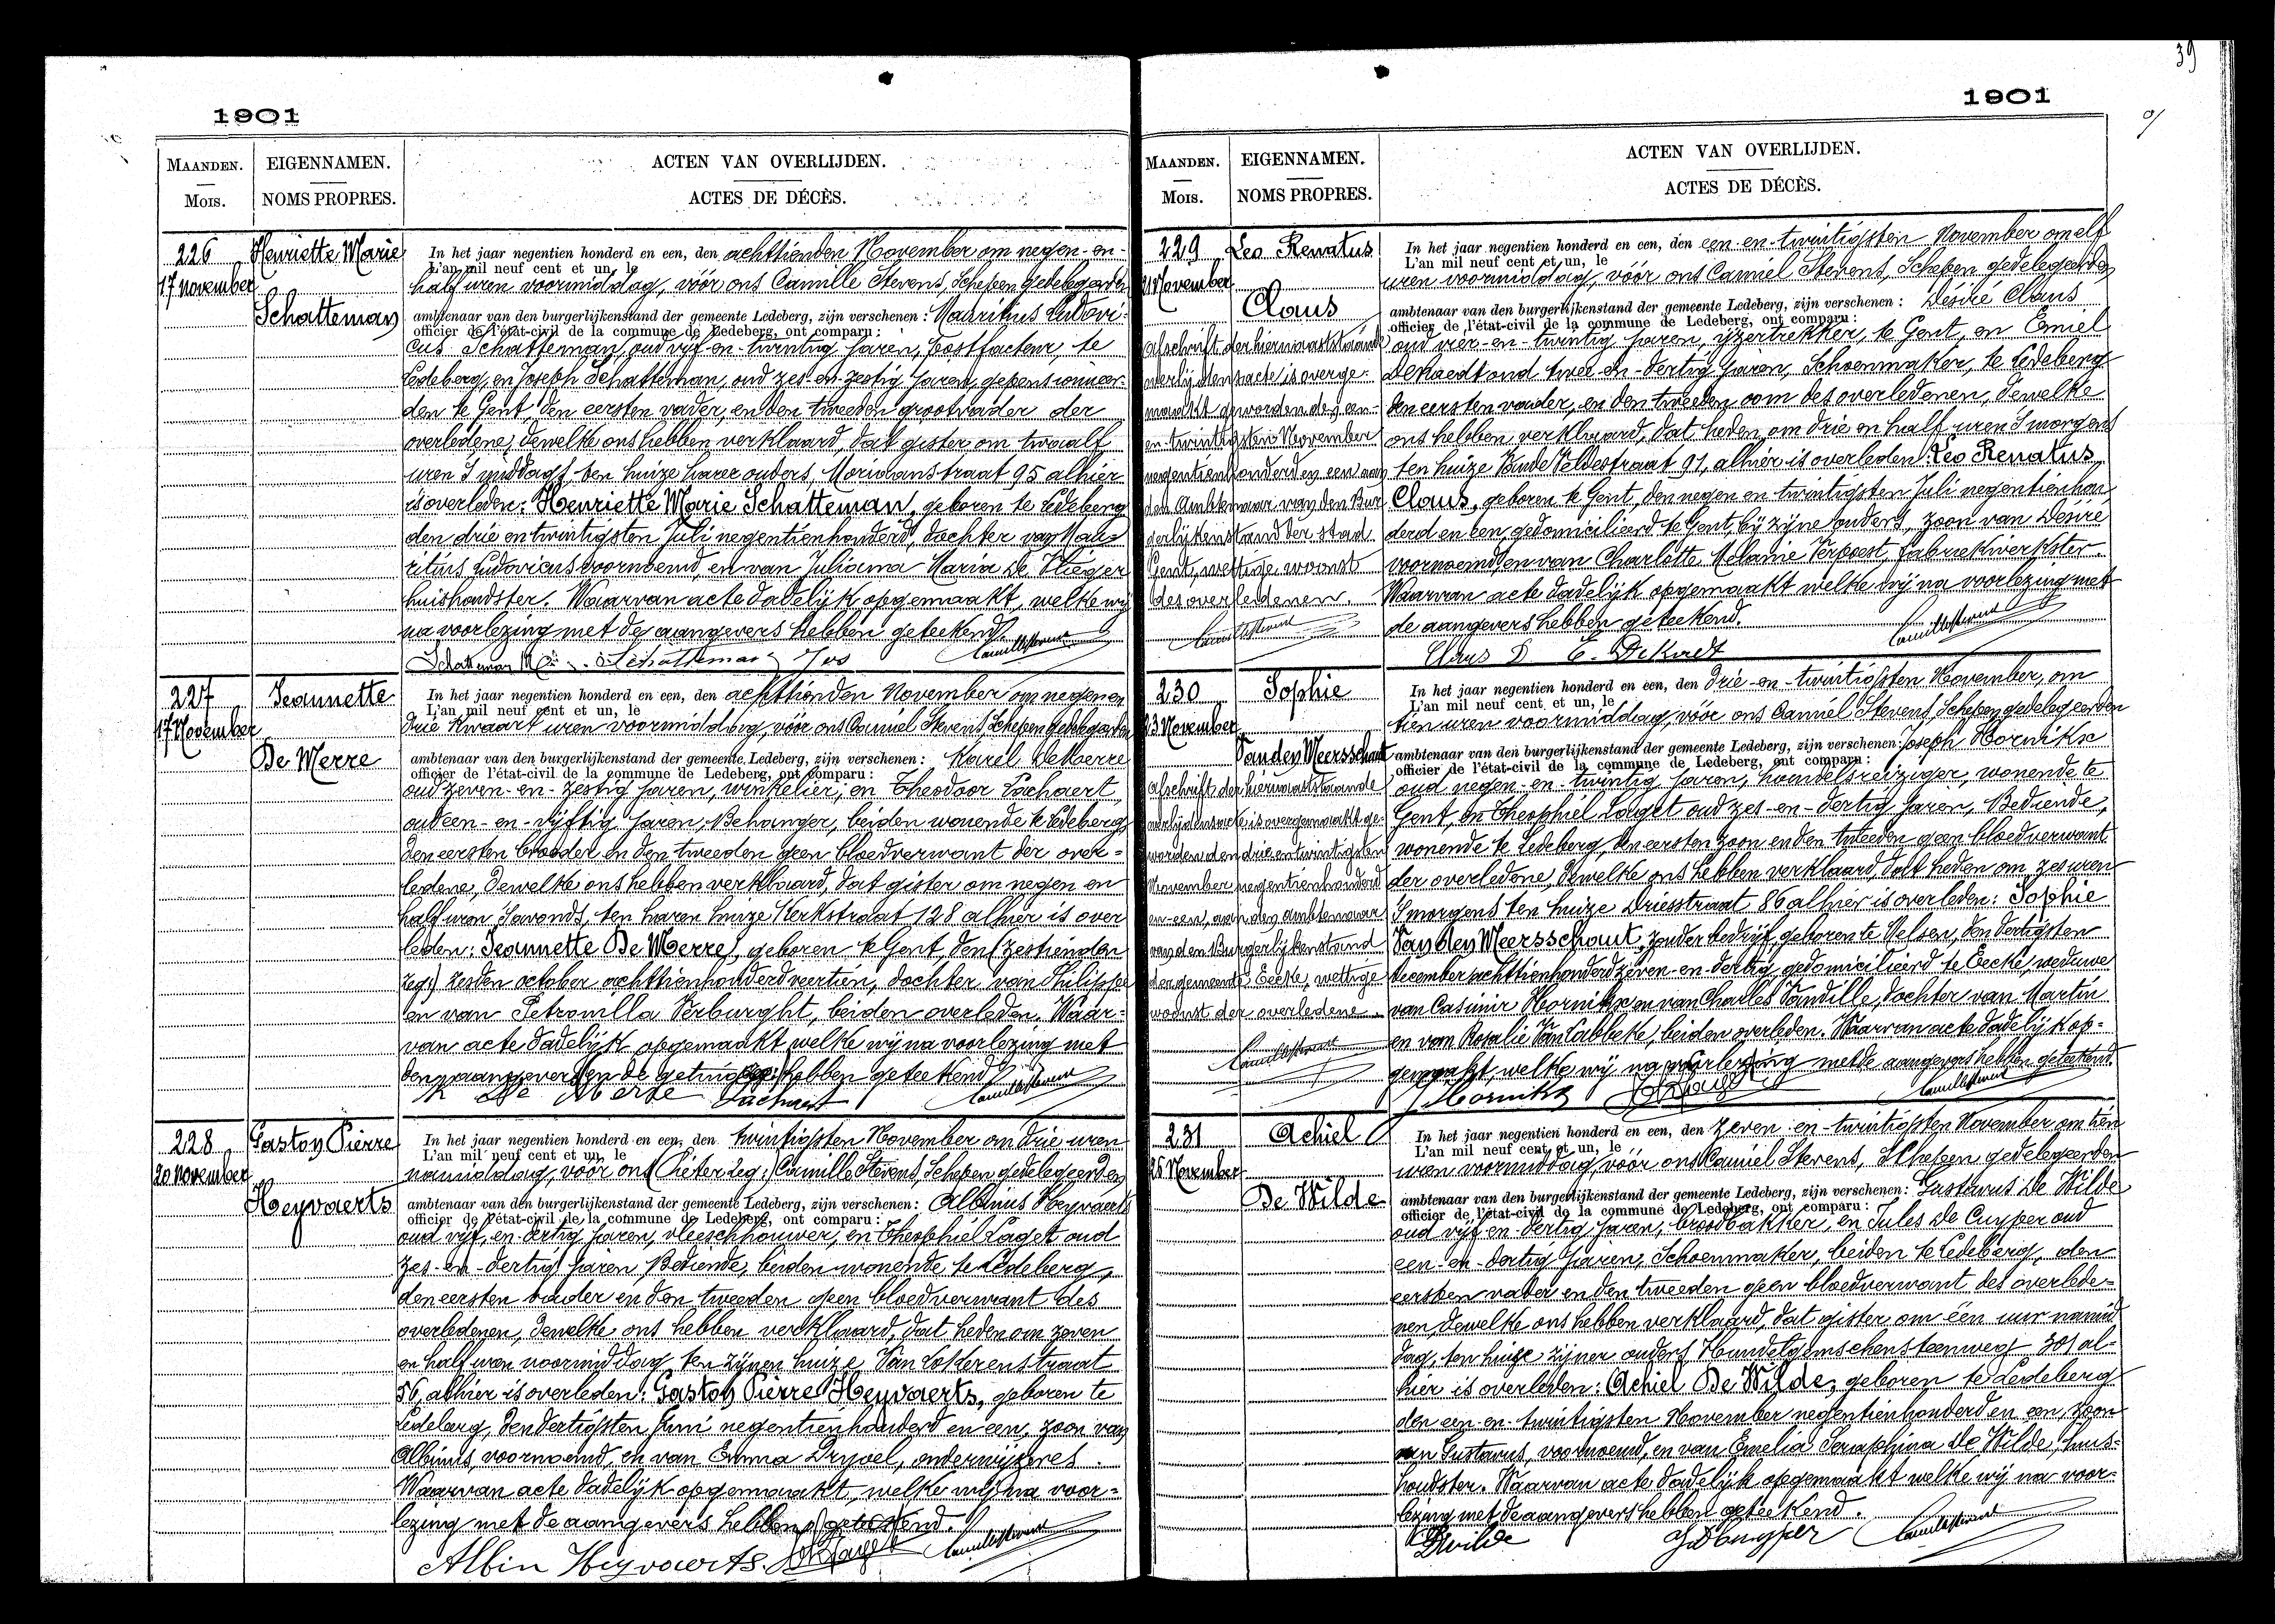 39
1901
MAANDEN.
Mois.
EIGENNAMEN.
NOMS PROPRES.
ACTEN VAN OVERLIJDEN.
ACTES DE DÉCÈS.
226
17 November
Henriette Marie
Schatteman
In het jaar negentien honderd en een, den achttienden November om negen-en-
L'an mil neuf cent et un, le
half uren voormiddag, vóór ons Camille Stevens, Schepen gedelegeerden
ambtenaar van den burgerlijkenstand der gemeente Ledeberg, zijn verschenen: Mauritius Ludovi-
officier de l'état-civil de la commune de Ledeberg, ont comparu:
cus Schatteman, oud vijf-en-twintig jaren, postfacteur, te
Ledeberg, en Joseph Schatteman, oud zes-en-zestig jaren, gepensionneer-
den te Gent, den eersten vader, en den tweeden grootvader der
overledene, dewelke ons hebben verklaard, dat gister om twaalf
uren 's middags, ten huize harer ouders, Moriaanstraat 95 alhier
is overleden: Henriette Marie Schatteman, geboren te Ledeberg
den drie en twintigsten Juli negentienhonderd, dochter van Mau-
ritius Ludovicus voornoemd, en van Juliana Maria De Vlieger
huishoudster. Waarvan acte dadelijk opgemaakt, welke wij
na voorlezing met de aangevers hebben geteekend.
Schatteman Schatteman Jos Camille Stevens
227
17 November
Jeannette
De Merre
In het jaar negentien honderd en een, den achttienden November om negen en
L'an mil neuf cent et un, le
drie kwaart uren voormiddag, vóór ons Camiel Stevens, Schepen gedelegeerden
ambtenaar van den burgerlijkenstand der gemeente Ledeberg, zijn verschenen: Karel De Merre
officier de l'état-civil de la commune de Ledeberg, ont comparu:
oud zeven-en-zestig jaren, winkelier, en Theodoor Lachaert,
oud een-en-vijftig jaren, Behanger, beiden wonende te Ledeberg
den eersten broeder en den tweeden geen bloedverwant der over-
ledene, dewelke ons hebben verklaard, dat gister om negen en
half uren 's avonds, ten haren huize Kerkstraat 128 alhier is over
leden: Jeannette De Merre, geboren te Gent, den (zestienden
zeg:) zesden october achttienhonderd veertien, dochter van Philippe
en van Petronilla Verburght, beiden overleden. Waar-
van acte dadelijk opgemaakt welke wij na voorlezing met
den aangever en de getuige hebben geteekend.
K De Merre Lachaert Camille Stevens
228
20 November
Gaston Pierre
Heyvaerts
In het jaar negentien honderd en een, den twintigsten November om drie uren
L'an mil neuf cent et un, le
namiddag, vóór ons (Pieter zeg:) Camille Stevens, Schepen gedelegeerden
ambtenaar van den burgerlijkenstand der gemeente Ledeberg, zijn verschenen: Albinus Heyvaerts
officier de l'état-civil de la commune de Ledeberg, ont comparu:
oud vijf-en-dertig jaren, vleeschhouwer, en Theophiel Laget oud
zes-en-dertig jaren, Bediende, beiden wonende te Ledeberg,
den eersten vader en den tweeden geen bloedverwant des
overledenen, dewelke ons hebben verklaard, dat heden om zeven
en half uren voormiddag, ten zijnen huize Van Lokerenstraat
56, alhier is overleden: Gaston Pierre Heyvaerts, geboren te
Ledeberg, den dertigsten Juni negentienhonderd en een, zoon van
Albinus, voornoemd, en van Emma Dryoel, onderwijzeres.
Waarvan acte dadelijk opgemaakt, welke wij na voor-
lezing met de aangevers hebben geteekend.
Albin Heyvaerts. Laget Camille Stevens
1901
MAANDEN.
Mois.
EIGENNAMEN.
NOMS PROPRES.
ACTEN VAN OVERLIJDEN.
ACTES DE DÉCÈS.
229
21 November
Leo Renatus
Claus
afschrift der hiernaaststaande
overlijdensacte is overge-
maakt geworden den een-
en-twintigsten November
negentienhonderd en een aan
den Ambtenaar van den Bur
gerlijkenstand der stad
Gent, wettige woonst
des overledenen.
Camille Stevens
In het jaar negentien honderd en een, den een-en-twintigsten November om elf
L'an mil neuf cent et un, le
uren voormiddag, vóór ons Camiel Stevens, Schepen gedelegeerden
ambtenaar van den burgerlijkenstand der gemeente Ledeberg, zijn verschenen: Désiré Claus
officier de l'état-civil de la commune de Ledeberg, ont comparu:
oud vier-en-twintig jaren, ijzertrekker, te Gent, en Emiel
DeKaedt oud twee-en-dertig jaren, Schoenmaker, te Ledeberg
den eersten vader, en den tweeden oom des overledenen, dewelke
ons hebben verklaard, dat heden om drie en half uren 's morgens
ten huize Vande Veldestraat 91, alhier is overleden: Leo Renatus
Claus, geboren te Gent, den negen en twintigsten Juli negentienhon
derd en een, gedomicilieerd te Gent, bij zijne ouders, zoon van Desire
voornoemd, en van Charlotte Melanie Verpoest, fabriekwerkster.
Waarvan acte dadelijk opgemaakt welke wij na voorlezing met
de aangevers hebben geteekend.
Claus D. E. DeKaedt Camille Stevens
230
23 November
Sophie
Van den Meersschaut
afschrift der hiernaaststaande
overlijdensacte is overgemaakt ge-
worden den drie en twintigsten
November negentienhonderd
en-een, aan den ambtenaar
van den Burgerlijkenstand
der gemeente Eecke, wettige
woonst der overledene.
Camille Stevens
In het jaar negentien honderd en een, den drie-en-twintigsten November, om
L'an mil neuf cent et un, le
tien uren voormiddag, vóór ons Camiel Stevens, Schepen gedelegeerden
ambtenaar van den burgerlijkenstand der gemeente Ledeberg, zijn verschenen: Joseph Hornikx
officier de l'état-civil de la commune de Ledeberg, ont comparu:
oud negen-en-twintig jaren, handelsreiziger, wonende te
Gent, en Theophiel Laget oud zes-en-dertig jaren, Bediende,
wonende te Ledeberg, den eersten zoon en den tweeden geen bloedverwant
der overledene, dewelke ons hebben verklaard, dat heden om zes uren
's morgens ten huize Driesstraat 86 alhier is overleden: Sophie
Van den Meersschaut, zonder bedrijf, geboren te Velsen, den dertigsten
december achttienhonderd zeven-en-dertig, gedomicilieerd te Eecke, weduwe
van Casimir Hornikx en van Charles Vandille, dochter van Martin
en van Rosalie Van Labbeke, beiden overleden. Waarvan acte dadelijk op-
gemaakt, welke wij na voorlezing met de aangevers hebben geteekend.
J Hornikx Laget Camille Stevens
231
26 November
Achiel
De Wilde
In het jaar negentien honderd en een, den zeven-en-twintigsten November om tien
L'an mil neuf cent et un, le
uren voormiddag, vóór ons Camiel Stevens, Schepen gedelegeerden
ambtenaar van den burgerlijkenstand der gemeente Ledeberg, zijn verschenen: Gustavus De Wilde
officier de l'état-civil de la commune de Ledeberg, ont comparu:
oud vijf-en-dertig jaren, broodbakker, en Jules De Cuyper oud
een-en-dertig jaren, Schoenmaker, beiden te Ledeberg, den
eersten vader en den tweeden geen bloedverwant des overlede-
nen, dewelke ons hebben verklaard, dat gister om één uur namid
dag, ten huize zijner ouders Hundelgemschensteenweg 301 al-
hier is overleden: Achiel De Wilde, geboren te Ledeberg
den een-en-twintigsten November negentienhonderd en een, zoon
van Gustavus, voornoemd, en van Emelia Seraphina De Wilde, huis-
houdster. Waarvan acte dadelijk opgemaakt welke wij na voor-
lezing met de aangevers hebben geteekend.
Dewilde J DeCuyper Camille Stevens